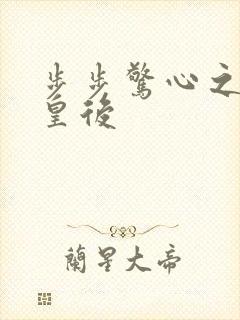 步步驚心之
皇後
蘭星大帝